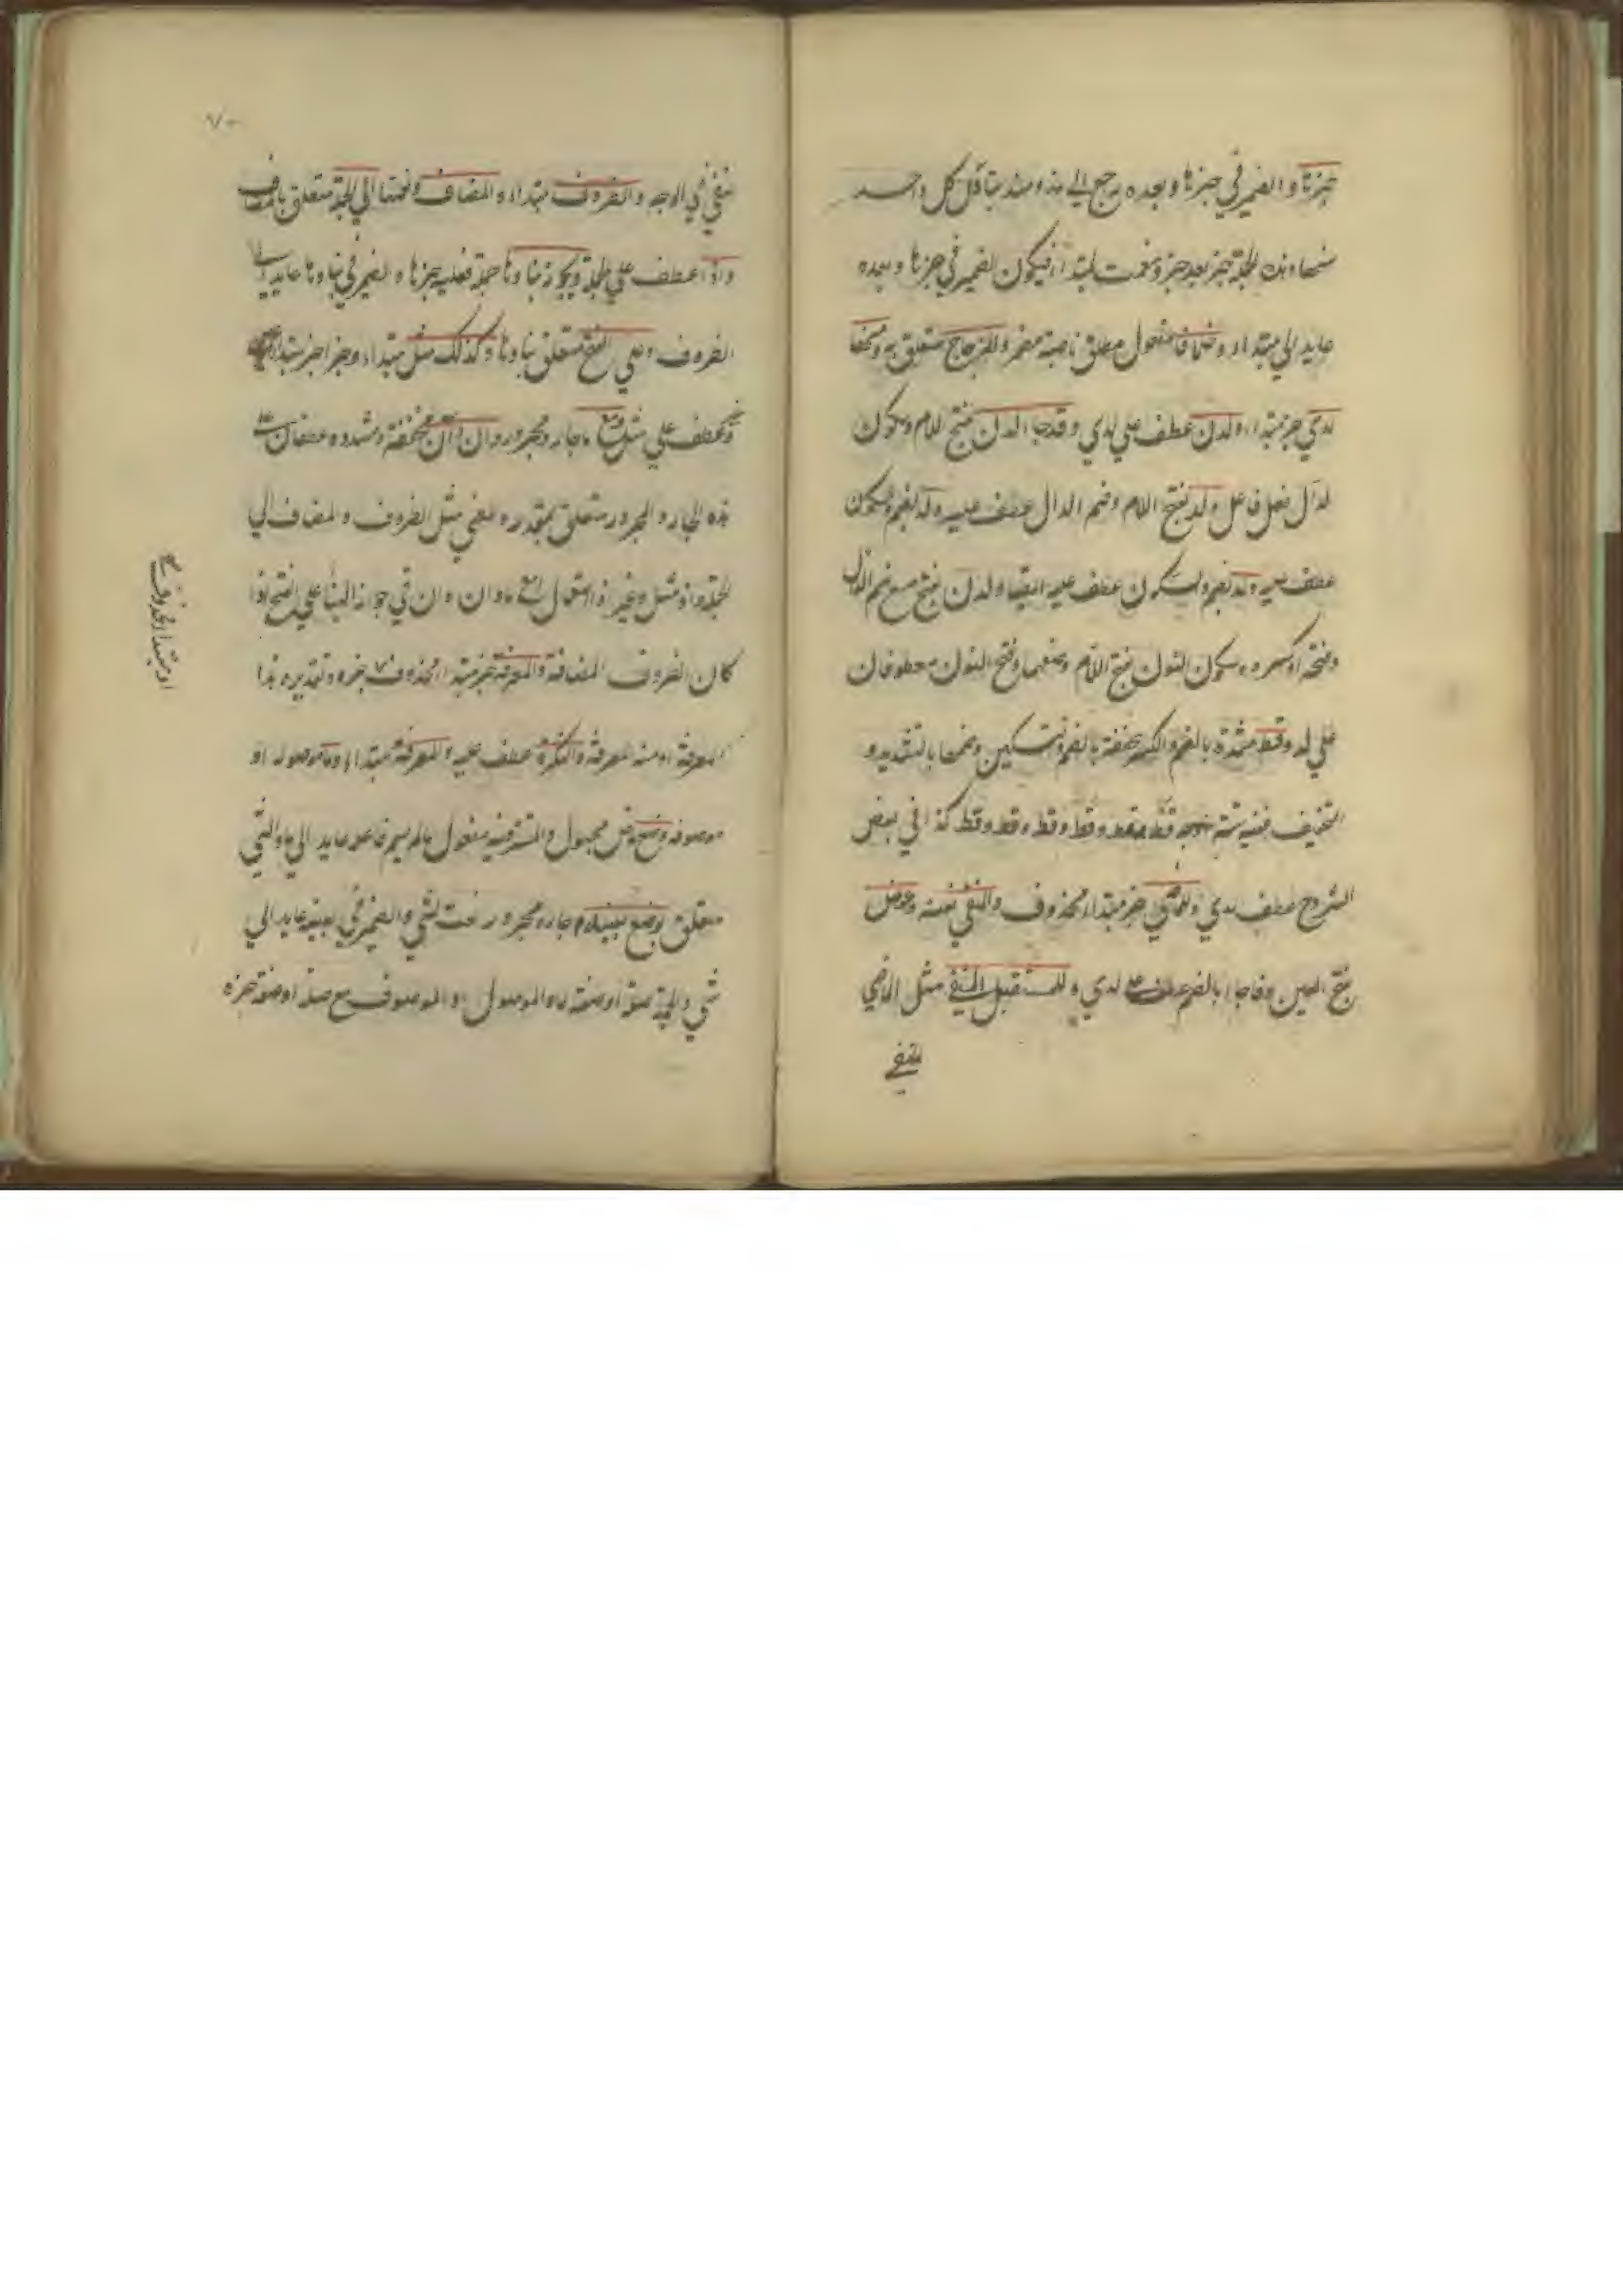 خبرنا والضمير في خبرنا وبعده يرجع الي مذ ومنذ بتأويل كل واحد
منهما وهذه الجملة خبر بعد خبر فيكون الضمير في خبرنا وبعده
عايد الي مبتداء وخلافا مفعول مطلق ناصبه مضمر وللزجاج متعلق به ومنها
لدي خبر مبتداء ولدن عطف علي لدي وقد جاء لدن بفتح اللام وسكون
الدال فعل فاعل ولد بفتح اللام وضم الدال عطف عليه ولد بضم وسكون
عطف عليه ولد بضم والسكون عطف عليه ايضا ولدن بفتح مع ضم الدال
وفتحه او كسره وسكون النون بفتح اللام وضمها وفتح النون معطوفان
علي لد وقط مشددة بالضم والكسر مخففة بالضم وتسكين وضمها بالتشديد و
التخفيف ففيه ستة قط وقط وقط وقط وقط كذا في بعض
الشروح عطف لدي وللماضي خبر مبتداء محذوف والمنفي نعته وعوض
بفتح العين وقد جاء بالضم عطف علي لدي وللمستقبل المنفي مثل الماضي
المنفي
٧٠
المنفي في الوجه والظروف مبتداء والمضاف نعتها الي الجملة متعلق بالمضاف
واذ عطف علي الجملة ويجوز بناوها جملة فعلية خبرها والضمير في بناوها عايد الي
الظروف وعلي الفتح متعلق بناوها وكذلك مثل مبتداء وخبر
وغير عطف علي مثل مع ما جار ومجرور وان وان مخففة ومشددة عطفان علي
هذه الجار والمجرور متعلق بمقدر والمعني مثل الظروف والمضاف الي
الجملة واذ مثل وغير اذا استعمل مع ما وان وان في جواز البناء علي الفتح اذا
كان الظروف المضافة والمعرفة خبر مبتداء محذوف خبره وتقديره هذا
المعرفة او منه المعرفة والنكرة عطف عليه والمعرفة مبتداء وما موصولة او
موصوفة وضع فعل مجهول والمستتر فيه مفعول ما لم يسم فاعله عايد الي ما ولشي
متعلق بوضع بعينه جار ومجرور نعت لشي والضمير في بعينه عايد الي
شي والجملة صلة او صفة ما والموصول او الموصوف مع صلته او صفته خبره
او مبتدأ محذوف